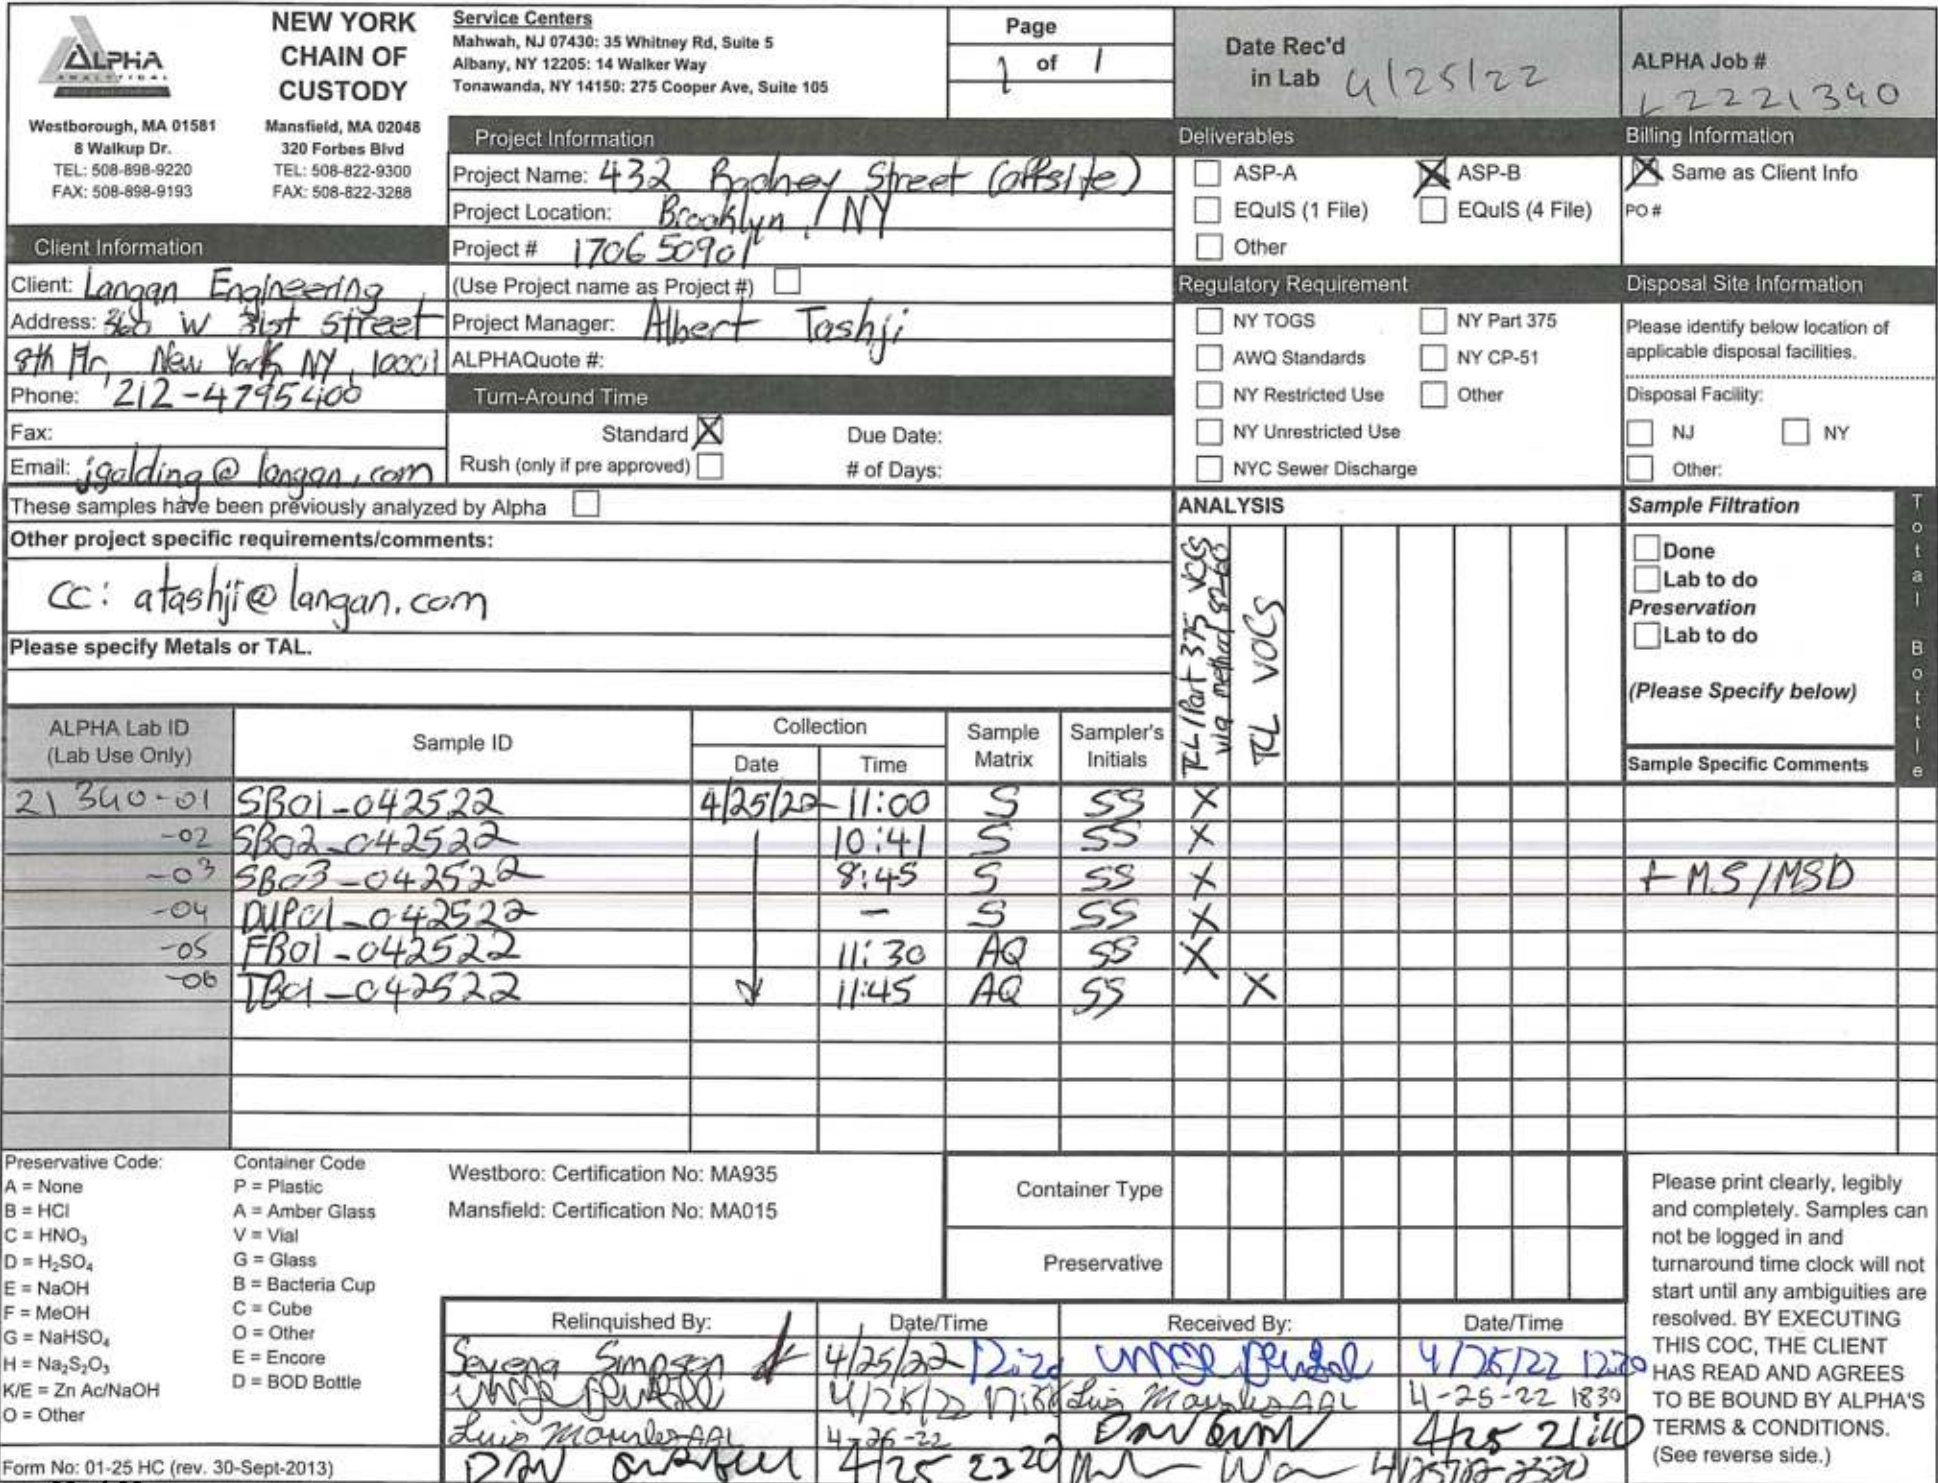 ALPHA
ANALYTICAL
NEW YORK
CHAIN OF
CUSTODY
Westborough, MA 01581
8 Walkup Dr.
TEL: 508-898-9220
FAX: 508-898-9193
Mansfield, MA 02048
320 Forbes Blvd
TEL: 508-822-9300
FAX: 508-822-3288
Service Centers
Mahwah, NJ 07430: 35 Whitney Rd, Suite 5
Albany, NY 12205: 14 Walker Way
Tonawanda, NY 14150: 275 Cooper Ave, Suite 105
Page
1 of 1
Date Rec'd
in Lab 4/25/22
ALPHA Job #
L2221340
Project Information
Project Name: 432 Rodney Street (offsite)
Project Location: Brooklyn, NY
Project # 170650901
(Use Project name as Project #)
Project Manager: Albert Tashji
ALPHAQuote #:
Client Information
Client: Langan Engineering
Address: 360 W 31st Street
8th Flr, New York NY, 10001
Phone: 212-4795400
Fax:
Email: jgolding@langan.com
Turn-Around Time
Standard X Due Date:
Rush (only if pre approved) # of Days:
Deliverables
ASP-A X ASP-B
EQuIS (1 File) EQuIS (4 File)
Other
Regulatory Requirement
NY TOGS NY Part 375
AWQ Standards NY CP-51
NY Restricted Use Other
NY Unrestricted Use
NYC Sewer Discharge
Billing Information
X Same as Client Info
PO #
Disposal Site Information
Please identify below location of
applicable disposal facilities.
Disposal Facility:
NJ NY
Other:
These samples have been previously analyzed by Alpha
Other project specific requirements/comments:
cc: atashji@langan.com
Please specify Metals or TAL.
ANALYSIS
TCL/Part 375 VOCs
via method 8260
TCL VOCs
Sample Filtration
Done
Lab to do
Preservation
Lab to do
(Please Specify below)
Sample Specific Comments
Total Bottle
ALPHA Lab ID
(Lab Use Only)
Sample ID
Collection
Date Time
Sample
Matrix
Sampler's
Initials
21340-01 SB01_042522 4/25/22 11:00 S SS X
-02 SB02_042522 10:41 S SS X
-03 SB03_042522 8:45 S SS X + MS/MSD
-04 DUP01_042522 - S SS X
-05 FB01_042522 11:30 AQ SS X
-06 TB01_042522 11:45 AQ SS X
Preservative Code:
A = None
B = HCl
C = HNO₃
D = H₂SO₄
E = NaOH
F = MeOH
G = NaHSO₄
H = Na₂S₂O₃
K/E = Zn Ac/NaOH
O = Other
Container Code
P = Plastic
A = Amber Glass
V = Vial
G = Glass
B = Bacteria Cup
C = Cube
O = Other
E = Encore
D = BOD Bottle
Westboro: Certification No: MA935
Mansfield: Certification No: MA015
Container Type
Preservative
Relinquished By: Date/Time Received By: Date/Time
Simpson 4/25/22 12:20 4/25/22 12:20
4/25/22 Luis AAL 4-25-22 1830
Luis AAL 4-25-22 4/25 21:10
4/25 2320 4/25/22 2320
Please print clearly, legibly
and completely. Samples can
not be logged in and
turnaround time clock will not
start until any ambiguities are
resolved. BY EXECUTING
THIS COC, THE CLIENT
HAS READ AND AGREES
TO BE BOUND BY ALPHA'S
TERMS & CONDITIONS.
(See reverse side.)
Form No: 01-25 HC (rev. 30-Sept-2013)